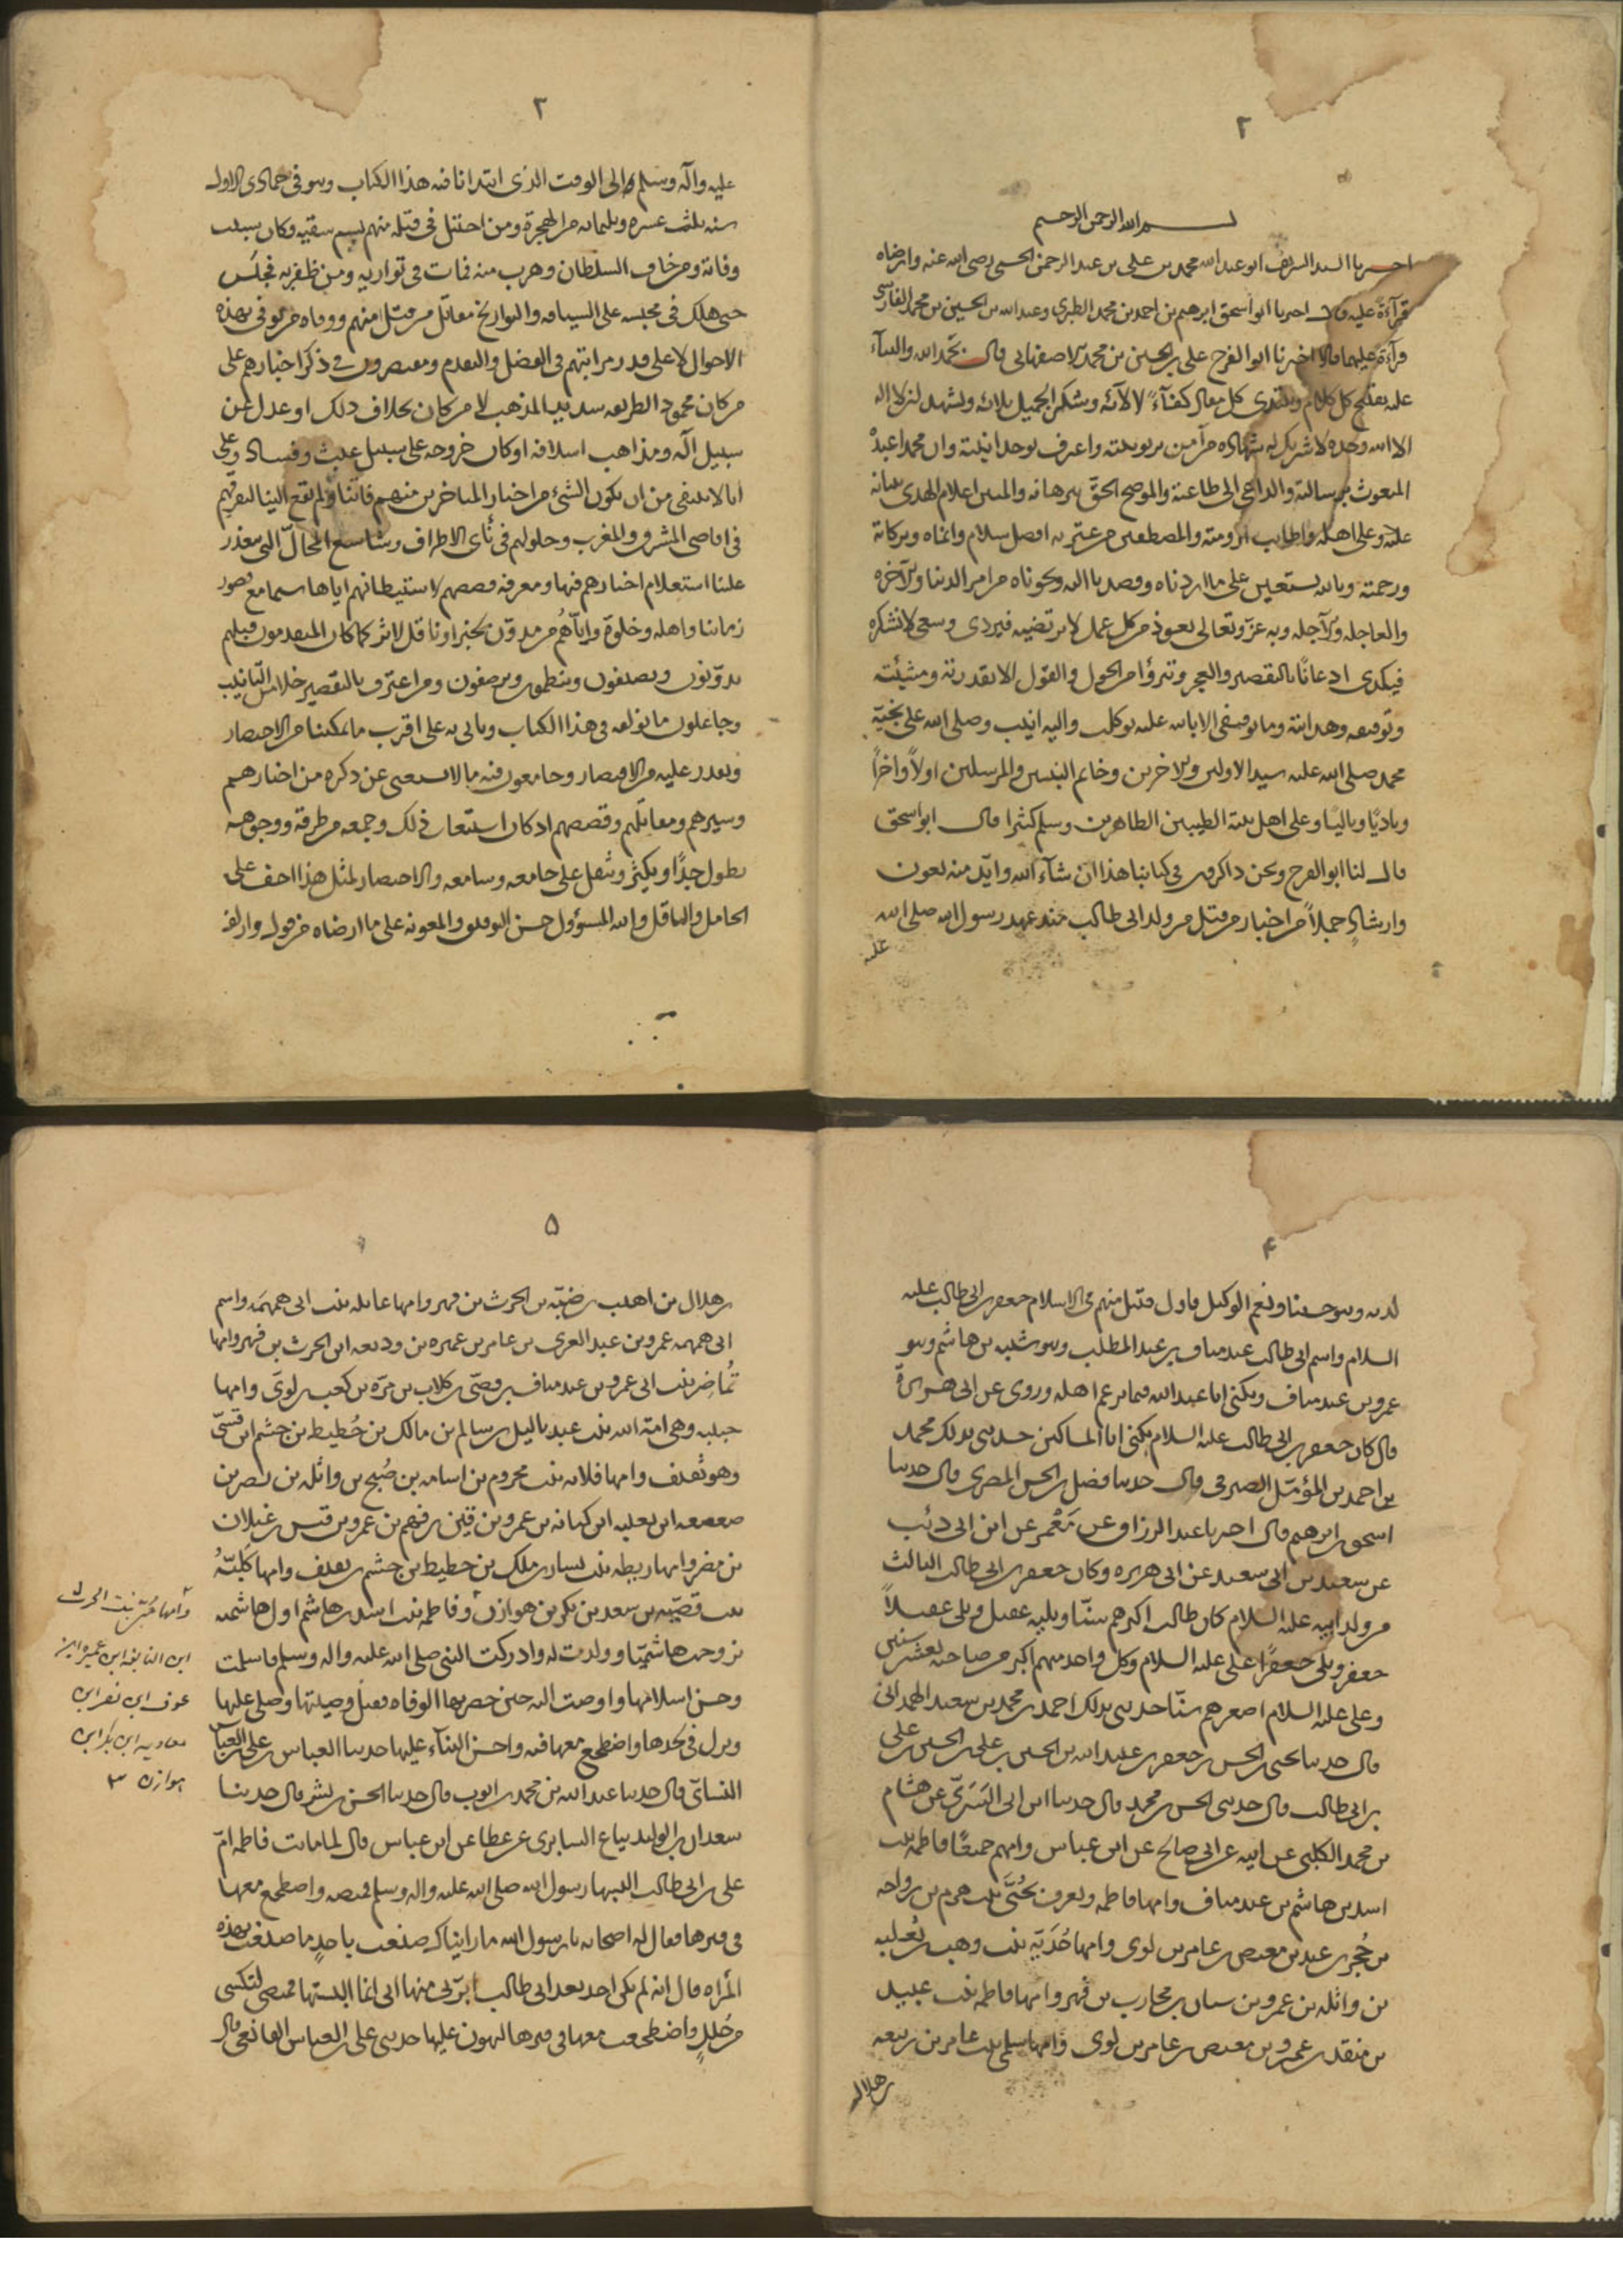 ٢
بسم الله الرحمن الرحيم
اخبرنا السيد الشريف ابو عبد الله محمد بن على بن عبد الرحمن الحسنى رضى الله عنه وارضاه
قرآءةً عليه قال اخبرنا ابو اسحق ابرهيم بن احمد بن محمد الطبرى وعبد الله بن الحسين بن محمد الفارسى
قرآءة عليهما قالا اخبرنا ابو الفرج على بن الحسين بن محمد الاصفهانى قال بحمد الله والثناء
عليه يفتتح كل كلام ويبتدى كل مقال كفآءً لالآئه وشكر الجميل بلائه ونشهد ان لا اله
الا الله وحده لا شريك له شهادة من آمن بربوبيته واعترف بوحدانيته وان محمدا عبدهُ
المبعوث برسالته والداعى الى طاعته والموضح الحقّ ببرهانه والمبين اعلام الهدى ببيانه
عليه وعلى اهله واطايب ارومته والمصطفين من عترته افضل سلام وانماه وبركاته
ورحمته وبالله نستعين على ما اردناه وقصدنا اليه ونحوناه من امر الدنيا والآخره
والعاجله والآجله وبه عزّ وتعالى نعوذ من كل عمل لا يرتضيه فيردى وسعى لا نشكره
فيكدى ادعانًا بالتقصير والعجر وتبرؤا من الحول والقول الا بقدرته ومشيئته
وتوفيقه وهدايته وما توفيقى الا بالله عليه توكلت واليه انيب وصلى الله على نخبته
محمد صلى الله عليه سيد الاولين والاخرين وخاتم النبيين والمرسلين اولاً واخراً
وباديًا وتاليًا وعلى اهل بيته الطيبين الطاهرين وسلم كثيرا قال ابو اسحق
قال لنا ابو الفرج ونحن ذاكرون فى كتابنا هذا ان شآء الله وايّد منه بعون
وارشادٍ جملاً من اخبار من قتل من ولد ابى طالب منذ عهد رسول الله صلى الله
عليه
٣
عليه وآله وسلم الى الوقت الذى ابتدانا فيه هذا الكتاب وهو فى جمادى الاولى
سنه ثلث عشره وثلثمائه من الهجرة ومن احتيل فى قتله منهم بسم سقيه وكان سبب
وفاته ومن خاف السلطان وهرب منه فمات فى تواريه ومن ظفر به فحبُس
حتى هلك فى محبسه على السياقه والتواريخ مقاتل من قتل منهم ووفاه من توفى بهذه
الاحوال لا على قدر مراتبهم فى الفضل والتقدم ومقتصرون فى ذكر اخبارهم على
من كان محمود الطريقه سديد المذهب لا من كان بخلاف ذلك او عدل عن
سبيل آله ومذاهب اسلافه او كان خروجه على سبيل عيث وفساد وعلى
انا لا ننتفى من ان يكون الشئ من اخبار المتاخرين منهم فاتنا ولم يقع الينا لتفرقهم
فى اقاصى المشرق والمغرب وحلولهم فى نأى الاطراف وشاسع المحالّ التى يتعذر
علينا استعلام اخبارهم فيها ومعرفه قصصهم لاستيطانهم اياها سيما مع قصور
زماننا واهله وخلوّه وايّاهُم من مدوّن بخبر او ناقل لاثر كما كان المتقدمون قبلهم
يدوّنون ويصنفون وينظمون ويرصفون ومن اعترف بالتقصير خلا من التأنيب
وجاعلون ما نولفه فى هذا الكتاب وناتى به على اقرب ما يمكننا من الاختصار
ونقدر عليه من الاقتصار وجامعون فيه ما لا يستغنى عن ذكره من اخبارهم
وسيرهم ومقاتلهم وقصصهم اذ كان استيعاب ذلك وجمعه من طرقه ووجوهه
يطول جدًّا ويكثر وثقل على جامعه وسامعه والاختصار لمثل هذا اخف على
الحامل والناقل والله المسؤول حسن التوفيق والمعونه على ما ارضاه من قول وازلف
۴
لديه وهو حسبنا ونعم الوكيل فاول قتيل منهم فى الاسلام جعفر بن ابى طالب عليه
السلام واسم ابى طالب عبد مناف بن عبد المطلب وهو شيبه بن هاشم وهو
عمرو بن عبد مناف ويكنى ابا عبد الله فيما يزعم اهله وروى عن ابى هريرةَ
قال كان جعفر بن ابى طالب عليه السلام يكنى ابا المساكين حدثنى بذلك محمد
بن احمد بن المؤمّل الصيرفى قال حدثنا فضل بن الحسن المصرى قال حدثنا
اسحق بن ابرهيم قال اخبرنا عبد الرزاق عن مَعْمر عن ابن ابى ذئب
عن سعيد بن ابى سعيد عن ابى هريره وكان جعفر بن ابى طالب الثالث
من ولد ابيه عليه السلام كان طالب اكبرهم سنًّا ويليه عقيل ويلى عقيلاً
جعفر ويلى جعفرًا على عليه السلام وكل واحد منهم اكبر من صاحبه بعشر سنين
وعلى عليه السلام اصغرهم سنًّا حدثنى بذلك احمد بن محمد بن سعيد الهمدانى
قال حدثنا يحيى بن الحسن بن جعفر بن عبيد الله بن الحسين بن على بن الحسين بن على
بن ابى طالب قال حدثنى الحسن بن محمد قال حدثنا ابن ابى السَرَىّ عن هشام
بن محمد الكلبى عن ابيه عن ابى صالح عن ابن عباس وامهم جميعًا فاطمه بنت
اسد بن هاشم بن عبد مناف وامها فاطمه وتعرف بحُبَّى بنت هرم بن رواحه
بن حُجر بن عبد بن معيص بن عامر بن لوى وامها حُدَيّه بنت وهب بن ثعلبه
بن واثله بن عمرو بن سنان بن محارب بن فهر وامها فاطمه بنت عبيد
بن منقذ بن عمرو بن معيص بن عامر بن لوى وامها سلمى بنت عامر بن ربيعه
بن هلال
۵
بن هلال بن اهيب بن ضبّه بن الحرث بن فهر وامها عاتكه بنت ابى همهمَه واسم
ابى همهمه عمرو بن عبد العزى بن عامر بن عميره بن وديعه ابن الحرث بن فهر وامها
تُماضِر بنت ابى عمرو بن عبد مناف بن قصّى بن كلاب بن مرّه بن كعب بن لوىّ وامها
حبيبه وهى امة الله بنت عبد ياليل بن سالم بن مالك بن حُطيط بن جشم ابن قسّى
وهو ثقيف وامها فلانه بنت مخزوم بن اسامه بن صُبح بن واثله بن نصر بن
صعصعه ابن ثعلبه ابن كنانه بن عمرو بن قين بن فهم بن عمرو بن قيس بن غيلان
بن مضر وامها ريطه بنت يسار بن ملك بن حطيط بن جشم بن ثقيف وامها كَليّبَهُ
بنت قصَيّه بن سعد بن بكر بن هوازن وفاطمه بنت اسد بن هاشم اول هاشميه
تزوجت هاشميّا وولدت له وادركت النبى صلى الله عليه واله وسلم فاسلمت
وحسن اسلامها واوصت اليه حين حضرتها الوفاه فقبل وصيتها وصلى عليها
ونزل فى لحدها واضطجع معها فيه واحسن الثناء عليها حدثنا العباس بن على بن العباس
النسائى قال حدثنا عبد الله بن محمد بن ايوب قال حدثنا الحسن بن بشر قال حدثنا
سعدان بن الوليد بياع السابرى عن عطا عن ابن عباس قال لما ماتت فاطمه امّ
على بن ابى طالب البسها رسول الله صلى الله عليه واله وسلم قميصه واضطجع معها
فى قبرها فقال له اصحابه يا رسول الله ما رايناك صنعت باحدٍ ما صنعت بهذه
المراه قال انه لم يكن احد بعد ابى طالب ابرّ بى منها انى انما البستها قميصى لتكسى
من حُللٍ واضطجعت معها فى قبرها ليهون عليها حدثنى على بن العباس المقانعى قال
وامها حُبّى بنت الحرث
ابن النابغه ابن عميره ابن
عوف ابن نصر ابن
معاويه ابن بكر ابن
هوازن